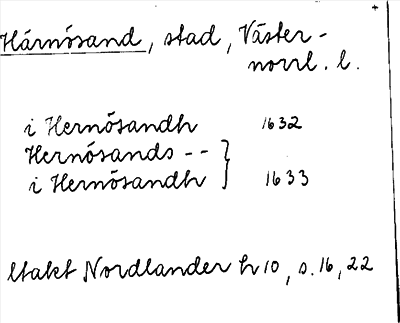 Härnösand, stad, Väster-
norrl. l.
i Hernösandh 1632
Hernösands --
i Hernösandh } 1633
ltakt Nordlander h 10, s. 16, 22